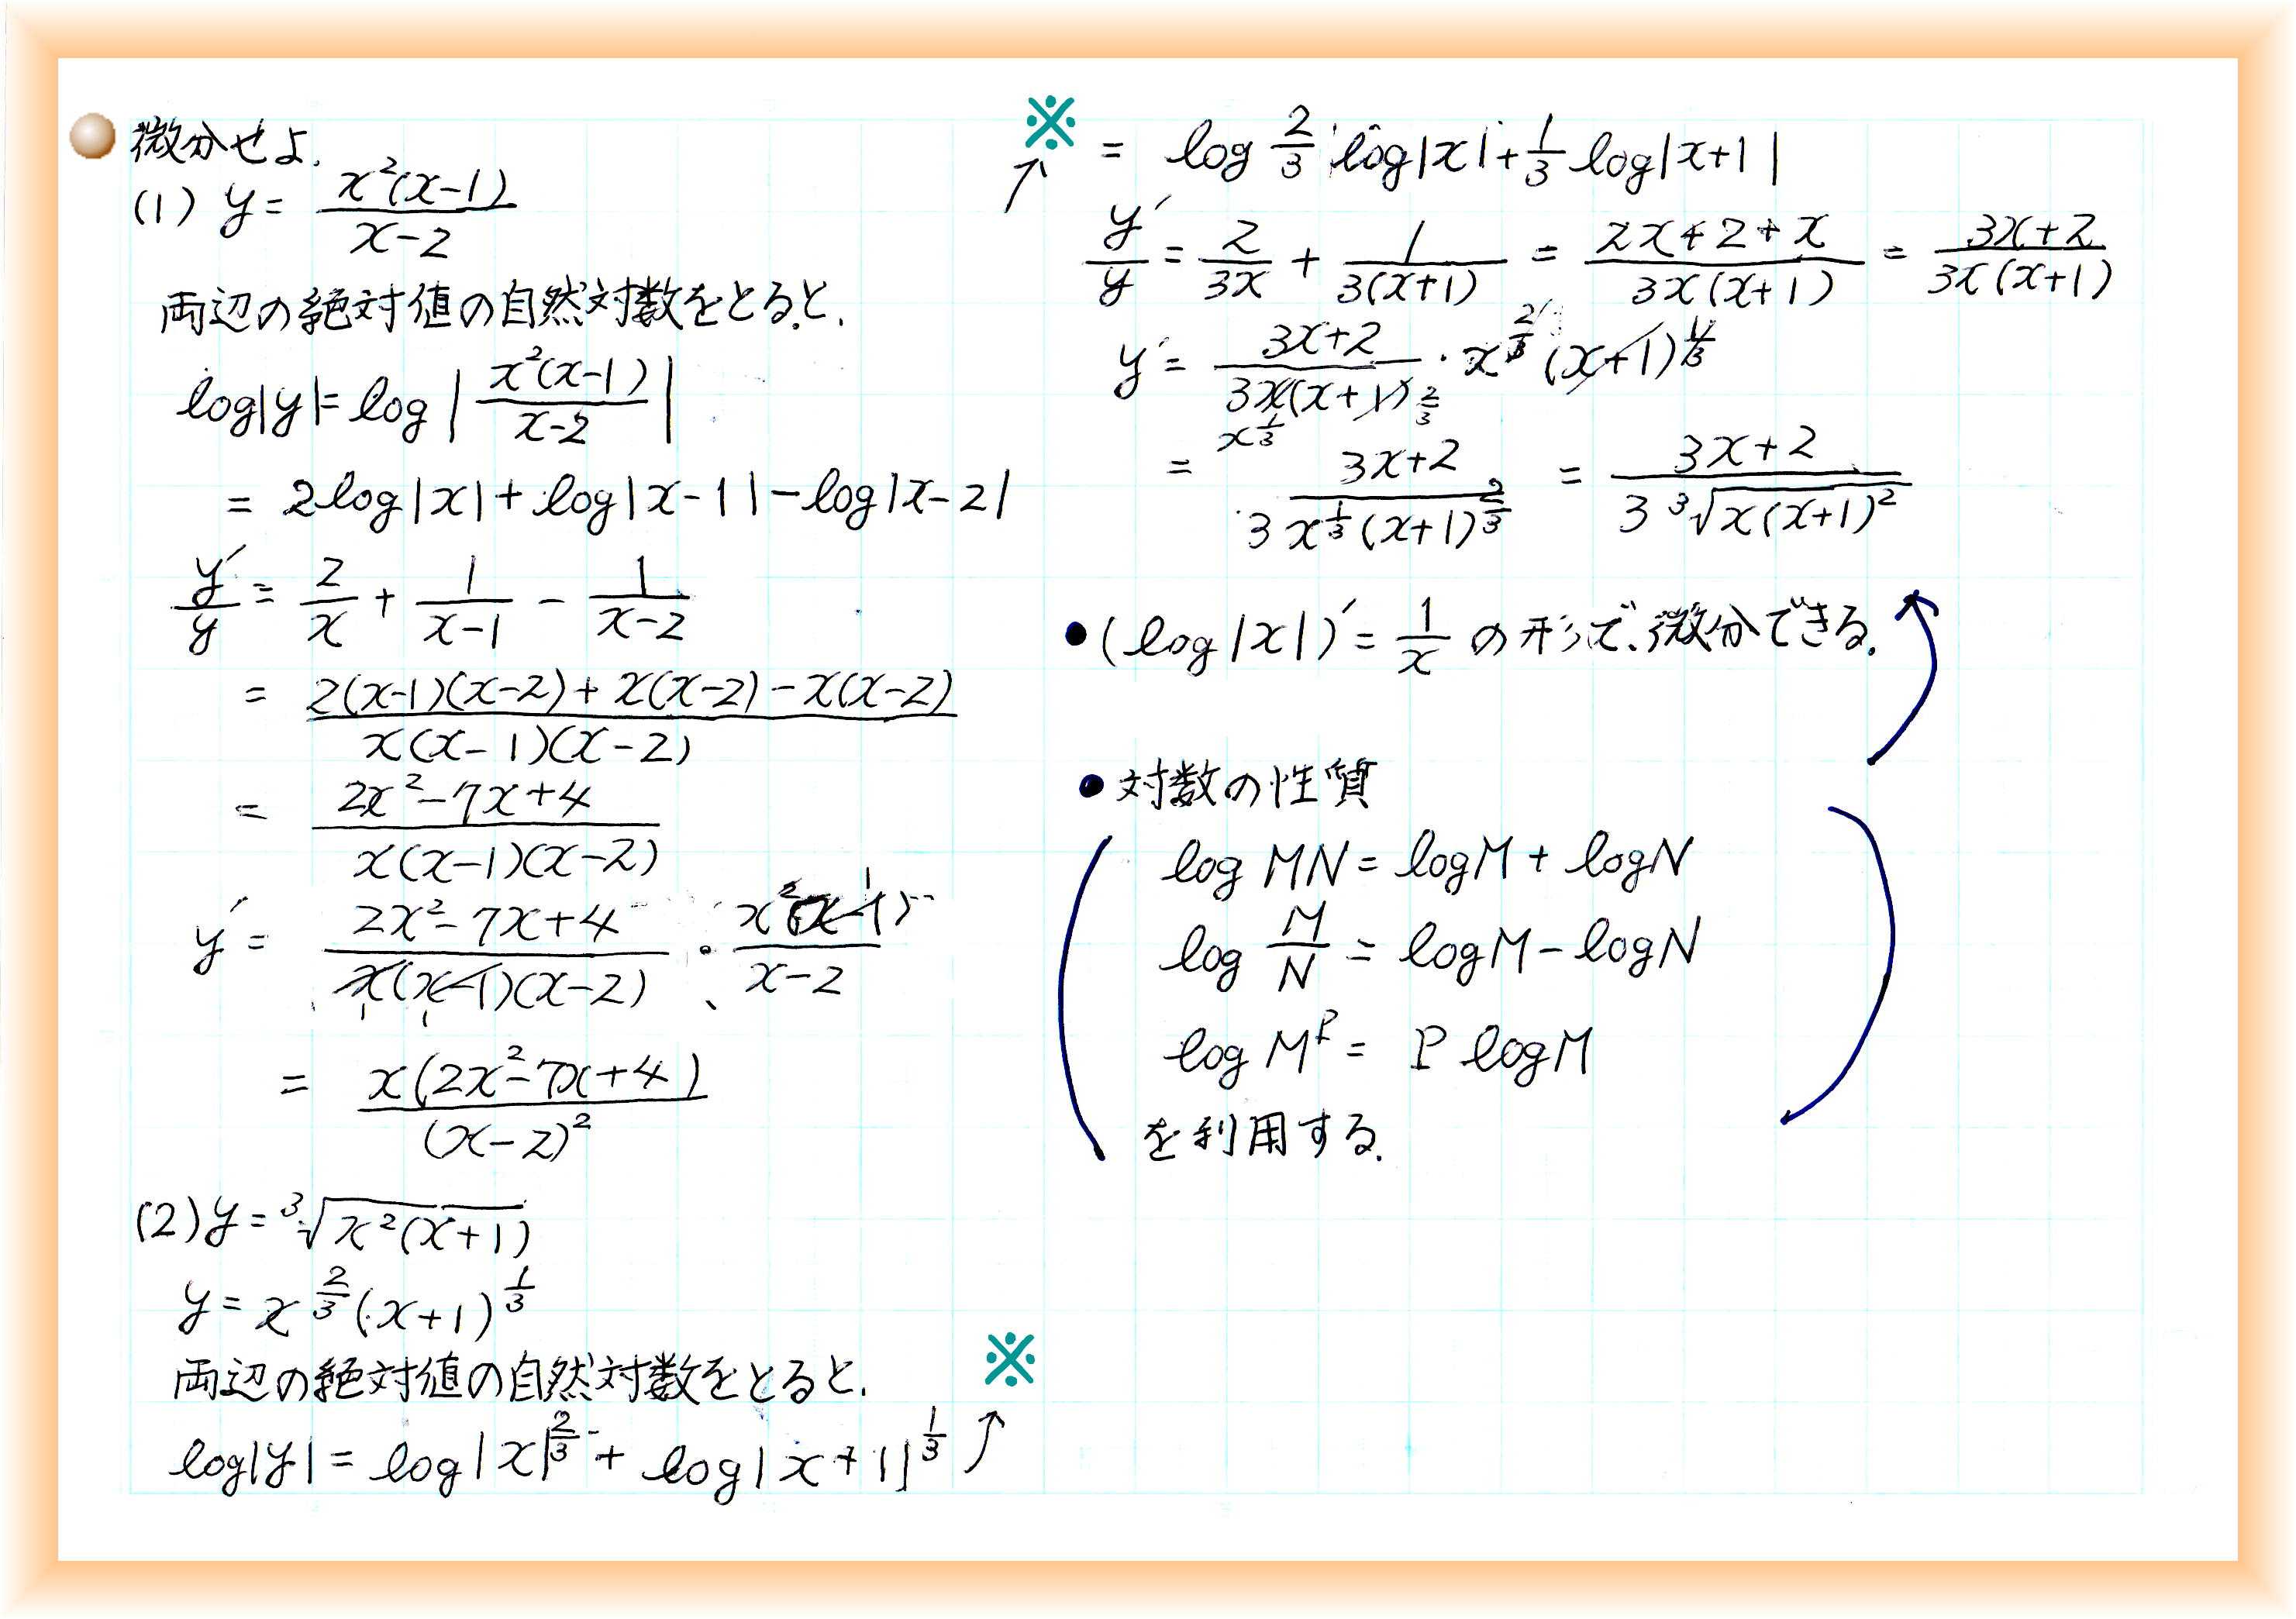 微分せよ.
(1) y = x²(x-1) / x-2
両辺の絶対値の自然対数をとると,
log|y| = log | x²(x-1) / x-2 |
= 2log|x| + log|x-1| - log|x-2|
y′/y = 2/x + 1/x-1 - 1/x-2
= 2(x-1)(x-2) + x(x-2) - x(x-2) / x(x-1)(x-2)
= 2x²-7x+4 / x(x-1)(x-2)
y′ = 2x²-7x+4 / x(x-1)(x-2) · x²(x-1) / x-2
= x(2x²-7x+4) / (x-2)²
(2) y = ³√x²(x+1)
y = x^2/3 (x+1)^1/3
両辺の絶対値の自然対数をとると.
※
log|y| = log|x|^2/3 + log|x+1|^1/3 ↑
※ = log 2/3 log|x| + 1/3 log|x+1|
↑
y′/y = 2/3x + 1/3(x+1) = 2x+2+x / 3x(x+1) = 3x+2 / 3x(x+1)
y′ = 3x+2 / 3x(x+1) · x^2/3 (x+1)^1/3
x^1/3 2/3
= 3x+2 / 3x^1/3 (x+1)^2/3 = 3x+2 / 3 ³√x(x+1)²
● (log|x|)′ = 1/x の形で、微分できる.
● 対数の性質
log MN = logM + logN
log M/N = logM - logN
log M^P = P logM
を利用する.